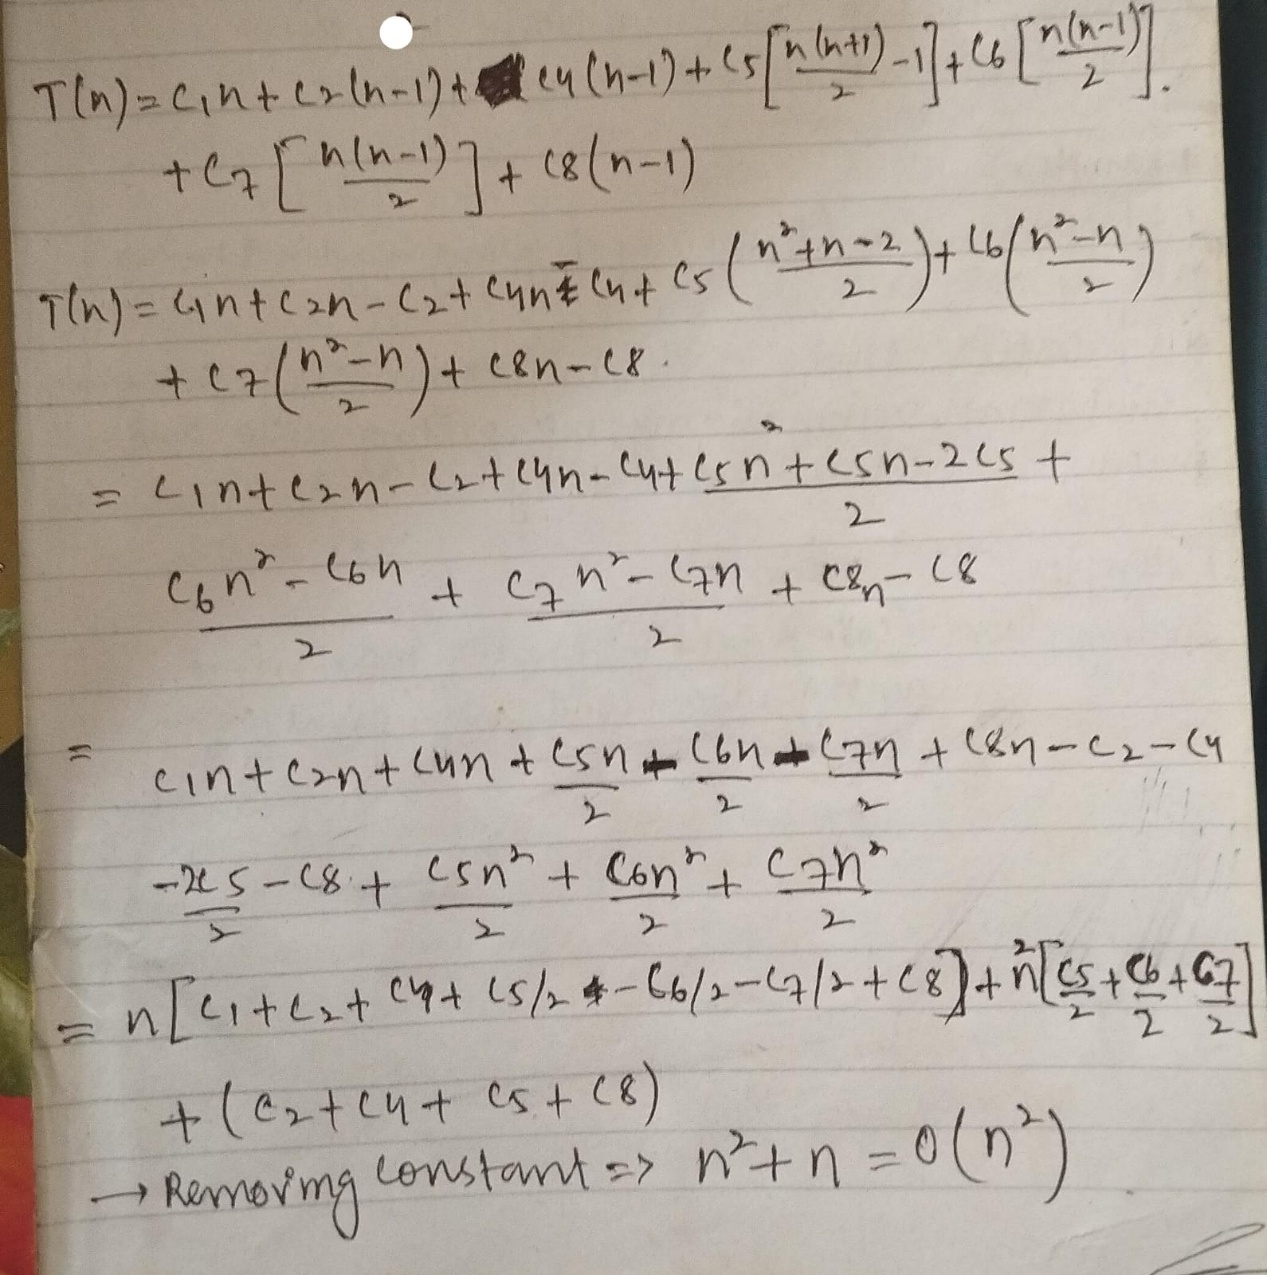 T(n) = c1n + c2(n-1) + c4(n-1) + c5[n(n+1)/2 - 1] + c6[n(n-1)/2].
+ c7[n(n-1)/2] + c8(n-1)
T(n) = c1n + c2n - c2 + c4n - c4 + c5(n²+n-2/2) + c6(n²-n/2)
+ c7(n²-n/2) + c8n - c8.
= c1n + c2n - c2 + c4n - c4 + c5n² + c5n - 2c5/2 +
c6n² - c6n/2 + c7n² - c7n/2 + c8n - c8
= c1n + c2n + c4n + c5n/2 - c6n/2 - c7n/2 + c8n - c2 - c4
-2c5/2 - c8 + c5n²/2 + c6n²/2 + c7n²/2
= n[c1 + c2 + c4 + c5/2 - c6/2 - c7/2 + c8] + n²[c5/2 + c6/2 + c7/2]
+ (c2 + c4 + c5 + c8)
→ Removing constant => n² + n = O(n²)